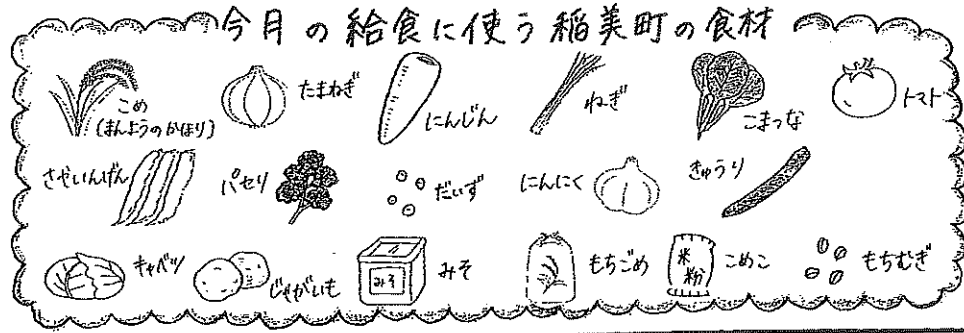 今月の給食に使う稲美町の食材
こめ
(まんようのかほり)
たまねぎ
にんじん
ねぎ
こまつな
トマト
さやいんげん
パセリ
だいず
にんにく
きゅうり
キャベツ
じゃがいも
みそ
みそ
もちごめ
米粉
こめこ
もちむぎ